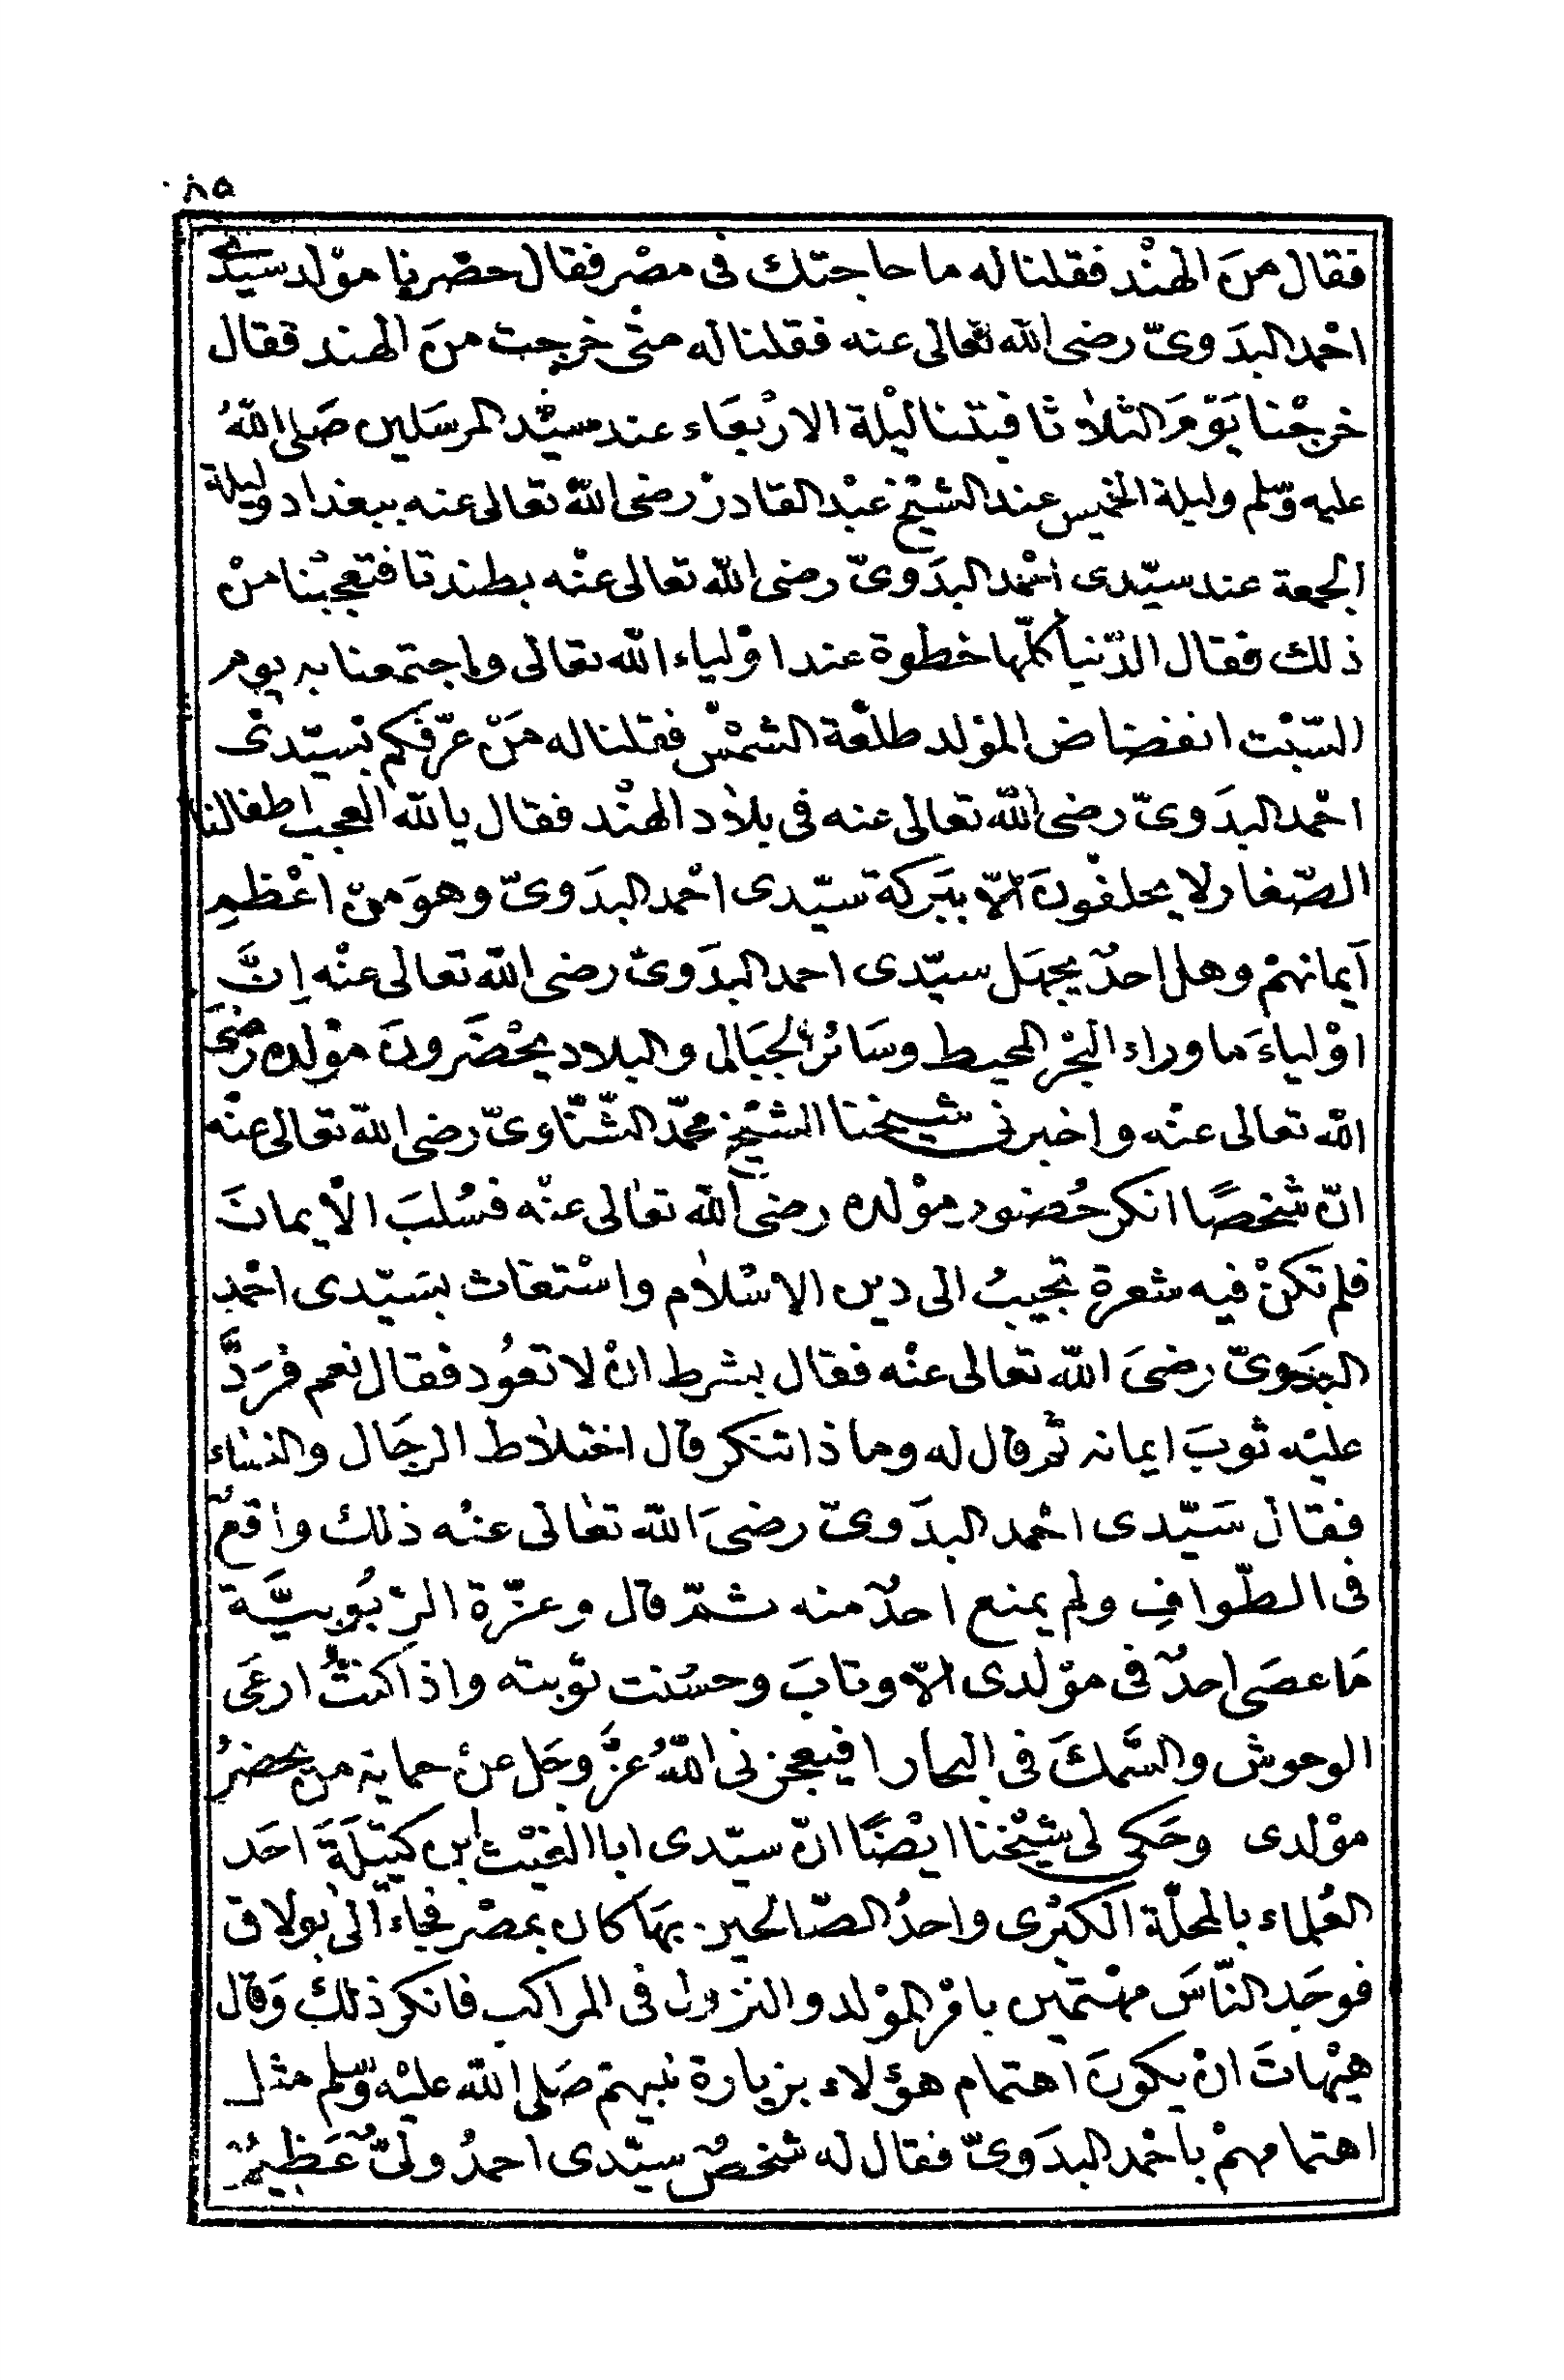 ٨٥
فقال منَ الهنْد فقلنا له ما حاجتك فى مصْر فقال حضرنا موْلد سَيّدى
احْمد البدَوىّ رضى الله تعالى عنه فقلنا له متى خرجت منَ الهند فقال
خرجْنا يَوْمَ الثلاثا فبتنا ليْلة الارْبعَاء عند سيّد المرسَلين صَلى اللهُ
عليه وسّلم وليلة الخميس عند الشيْخ عبْد القادر رضى اللهُ تعالى عنه ببغداد وليلة
الجمعة عند سيّدى احْمد البدَوىّ رضى الله تعالى عنْه بطندتا فتعجبْنا منْ
ذلك فقال الدّنيا كلّها خطوة عند اوْلياء الله تعالى واجتمعنا به يوم
السّبْت انفضاض الموْلد طلعْة الشمْس فقلنا له مَنْ عرّفكم بسيّدى
احْمد البدَوىّ رضى اللهُ تعالى عنه فى بلاد الهنْد فقال يالله العجب اطفالنا
الصّغار لا يحلفُونَ الاّ ببَركة سيّدى احْمد البدَوىّ وهوَ منْ اعْظمِ
اَيمانهمْ وهل احدٌ يجهَل سيّدى احمد البدَوىّ رضى الله تعالى عنْه اِنَّ
اوْلياءَ ما وراء البحْر المحيط وسَائر الجبَال والبلاد يحْضرُونَ موْلده رضىَ
الله تعالى عنْه واخبرنى شيخنا الشيْخ محمّد الشّنّاوىّ رضى الله تعالى عنْه
انّ شخصًا انكر حُضور موْلده رضى الله تعالى عنْه فسُلبَ الاْيمانَ
فلم تكنْ فيه شعرة تجيبُ الى دين الاِسْلام واسْتغاث بسَيّدى احْمد
البدَوىّ رضىَ الله تعالى عنْه فقال بشرط انْ لا تعُود فقال نعم فرَدَّ
عليْه ثوبَ ايمانه ثم قال له وما ذا تنكر قال اختلاط الرجَال والنسَاء
فقالَ سَيّدى احْمد البدَوىّ رضىَ الله تعالى عنْه ذلك واقعٌ
فى الطّوافِ ولم يمنع احدٌ منه ثمّ قال وعزّة الرّبُوبيَّة
مَا عصَى احدٌ فى موْلدى الاّ وتابَ وحسُنت توْبته واذا كنتُ ارعَى
الوحوش والسَّمكَ فى البحار افيعجزنى اللهُ عزَّ وجَل عنْ حماية من يحضرُ
موْلدى وحَكى لى شيْخنا ايْضًا انّ سيّدى ابا الغيْث ابن كتيْلَةَ احَد
العُلماء بالمحلّة الكبْرى واحدُ الصّالحين بهَا كان بمصْر فجاءَ الى بولاق
فوجَد النّاسَ مهْتمين بامْر الموْلد والنزول فى المراكب فانكر ذلكَ وَقال
هيْهاتَ انْ يكونَ اهتمام هؤلاء بزيارة نبيهمْ صَلى الله عليْه وسّلم مثل
اهتمامهمْ باحْمد البدَوىّ فقال له شخصٌ سيّدى احمدُ ولىٌّ عَظيمٌ